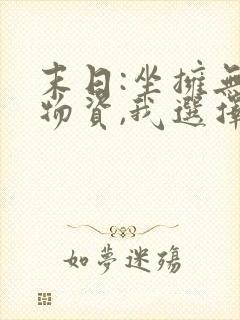 末日:坐擁無
物資,我選擇
如夢迷殤